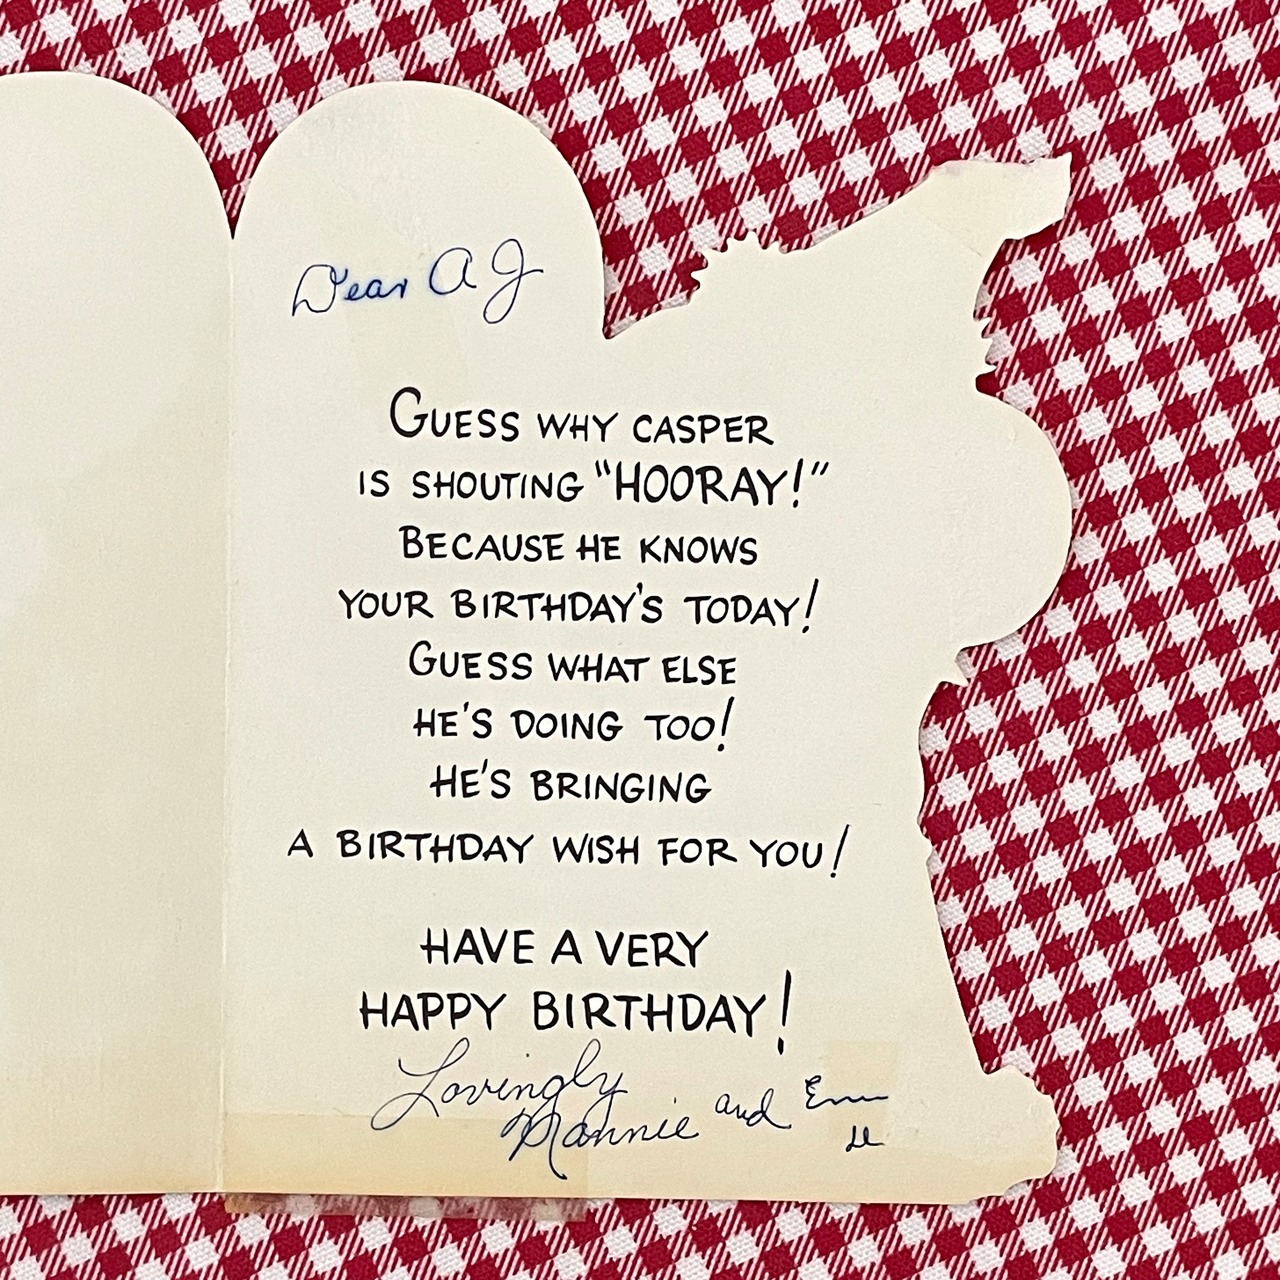 Dear A J
GUESS WHY CASPER
IS SHOUTING "HOORAY!"
BECAUSE HE KNOWS
YOUR BIRTHDAY'S TODAY!
GUESS WHAT ELSE
HE'S DOING TOO!
HE'S BRINGING
A BIRTHDAY WISH FOR YOU!
HAVE A VERY
HAPPY BIRTHDAY!
Lovingly
Mannie and